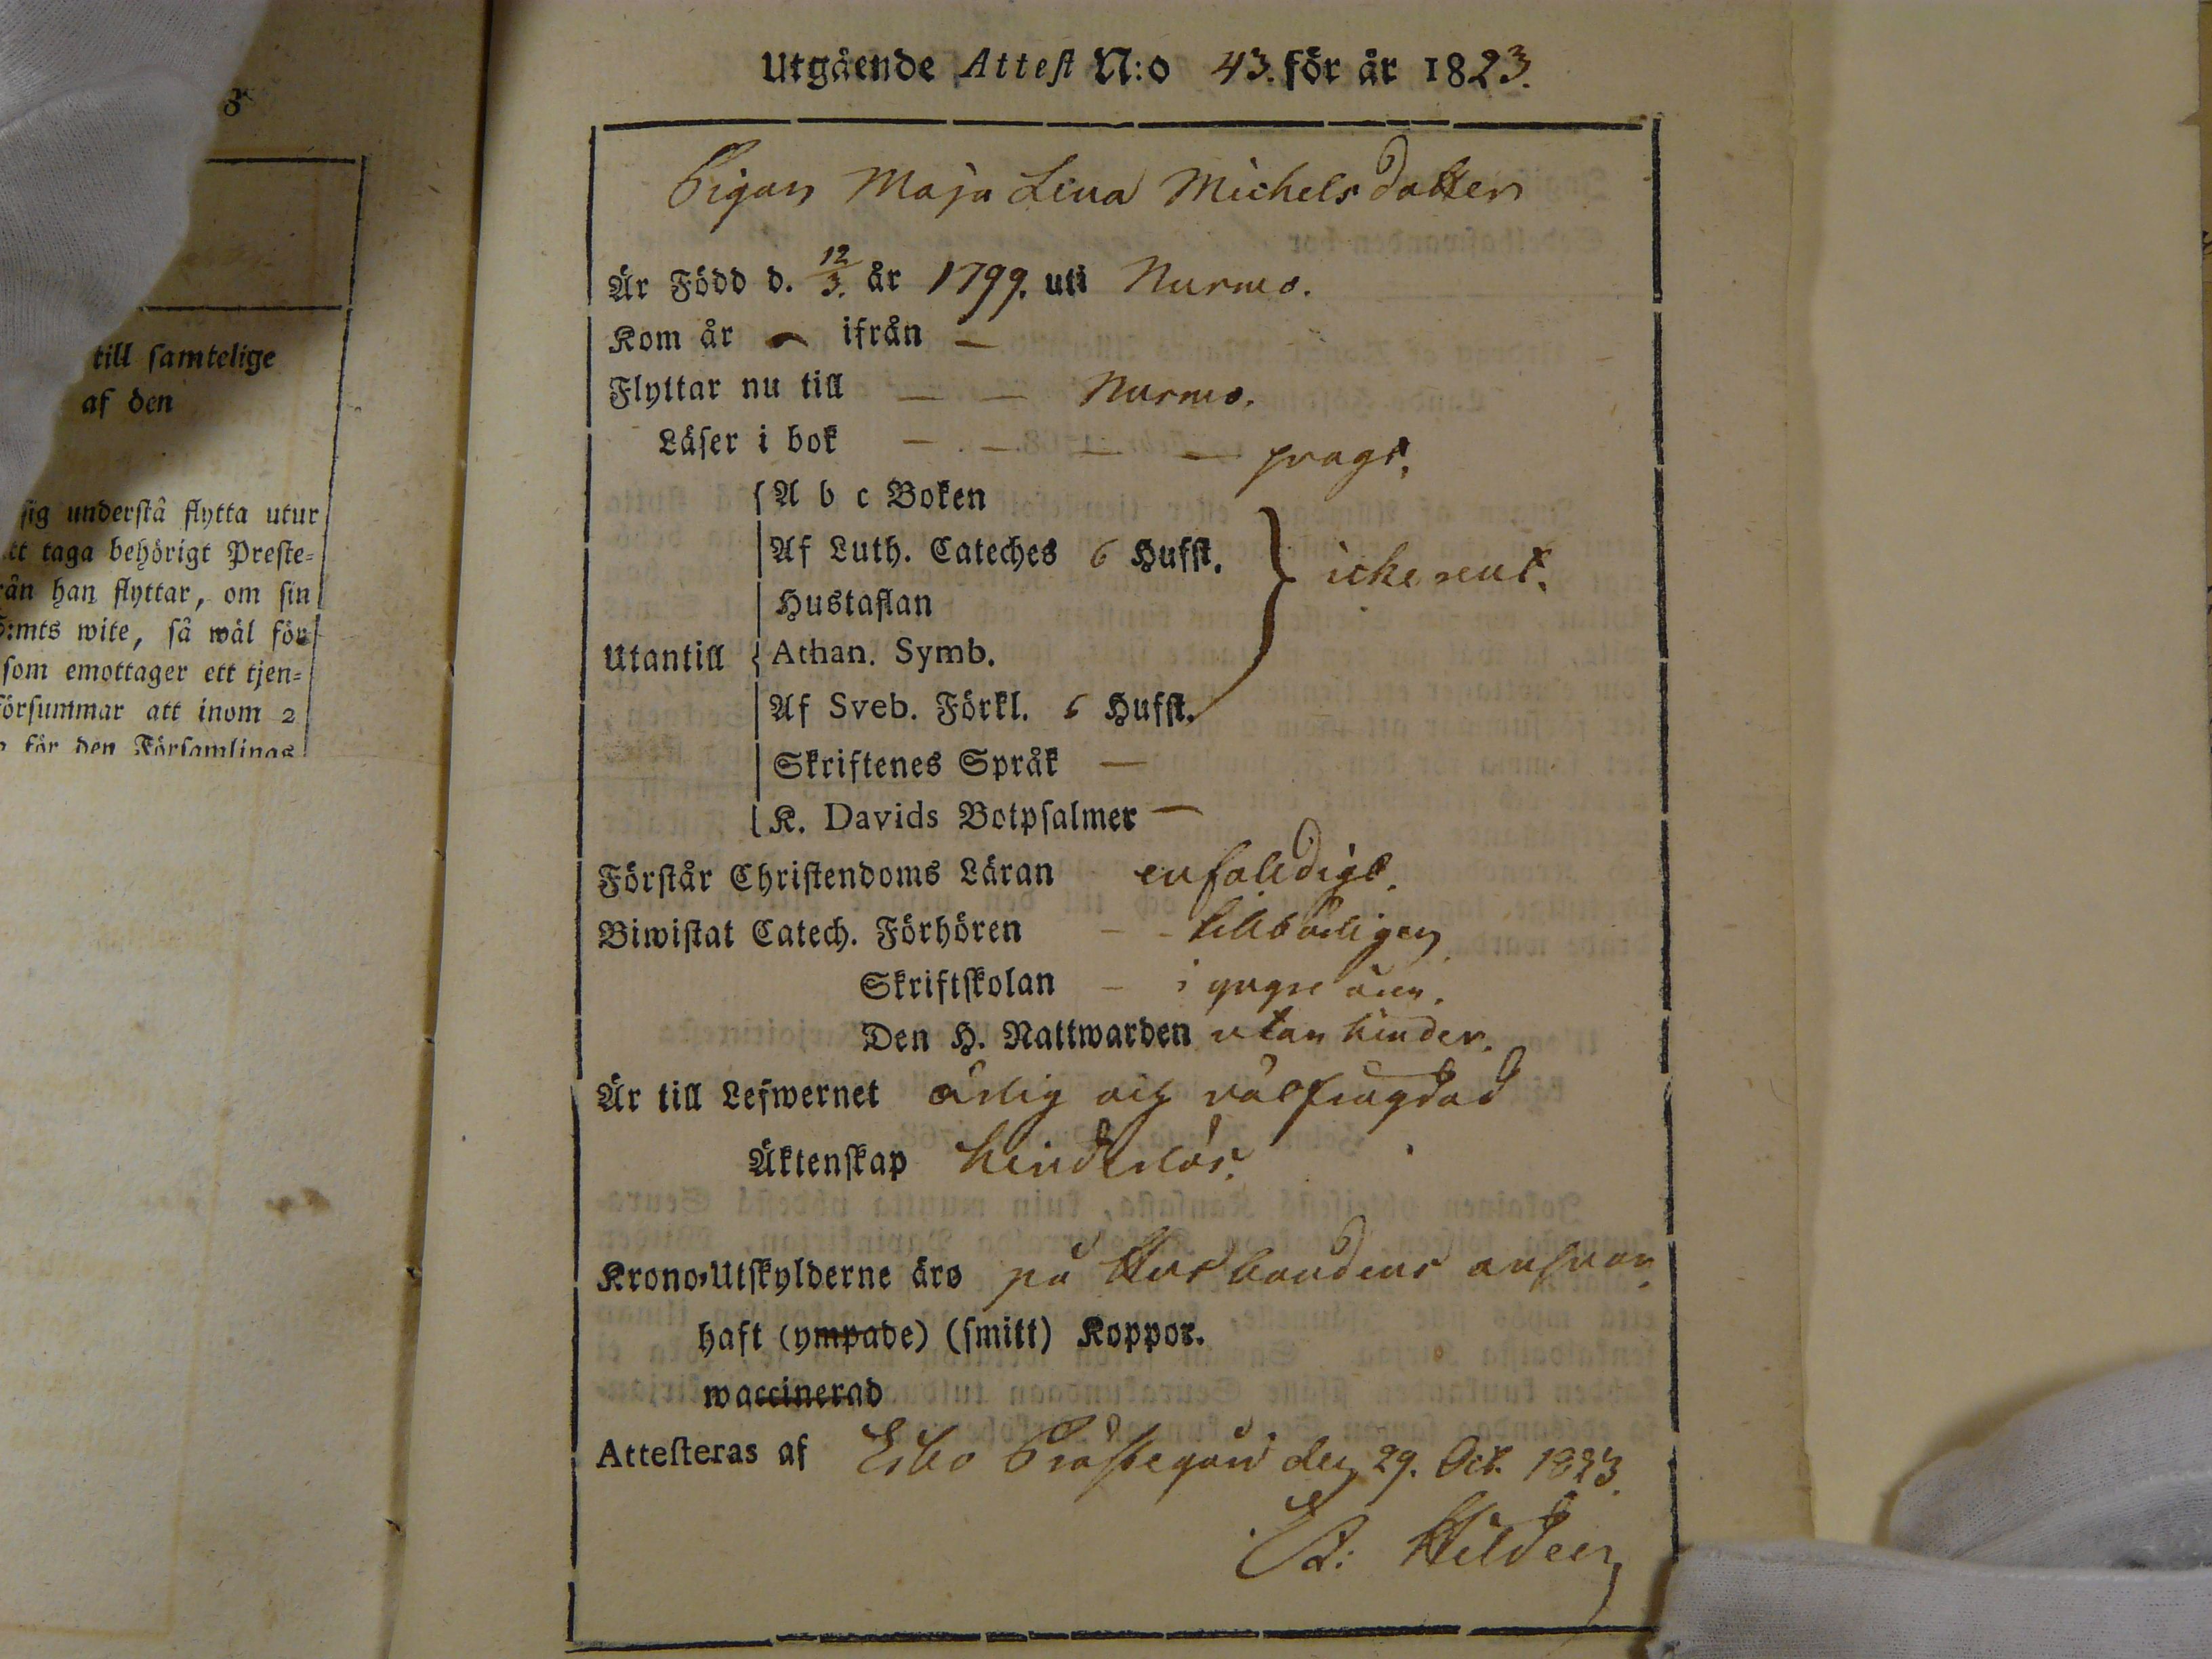 3
till samtelige
af den
sig understå flytta utur
taga behörigt Preste-
han flyttar, om sin
wite, så wäl för
som emottager ett tjen-
försummar att inom 2
för den Församlings
Utgående Attest N:o 43. för år 1823.
Pigan Maja Lena Michelsdotter
Är Född d. 12/3. år 1799. uti Nurmo.
Kom år – ifrån –
Flyttar nu till – – Nurmo.
Läser i bok – – – – svagt.
A b c Boken
Af Luth. Cateches 6 Hufst. } icke rent.
Hustaflan
Utantill { Athan. Symb.
Af Sveb. Förkl. 6 Hufst.
Skriftenes Språk –
K. Davids Botpsalmer –
Förstår Christendoms Läran enfaldigt.
Biwistat Catech. Förhören – – tillbörligen
Skriftskolan – i yngre åren.
Den H. Nattwarden utan hinder.
Är till Lefwernet ärlig och välfrägdad
Äktenskap hinderlös.
Krono-Utskylderne äro på Husbondens ansvar.
haft (ympade) (smitt) Koppor.
waccinerad
Attesteras af Esbo Prästegård den 29. Oct. 1823.
Hildeen